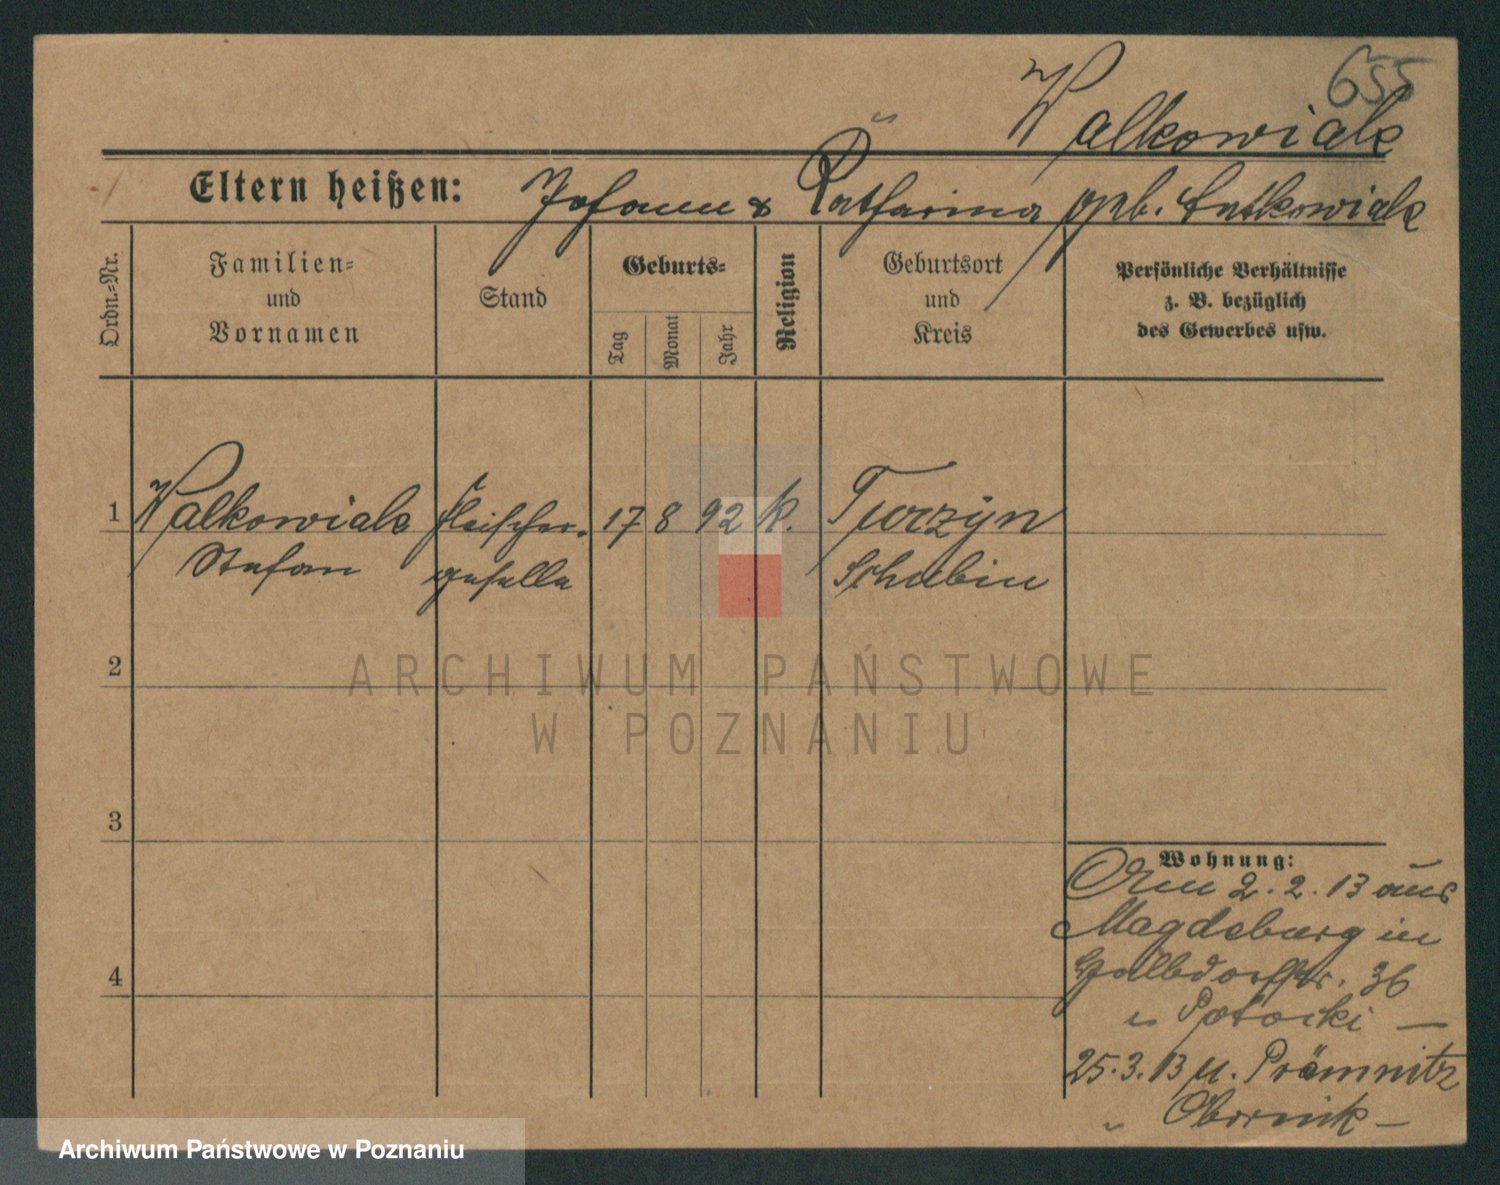 655
Walkowiak
Eltern heißen: Johann & Katharina geb. Ratkowiak
Ordn.-Nr.
Familien-
und
Vornamen
Stand
Geburts-
Tag
Monat
Jahr
Religion
Geburtsort
und
Kreis
Persönliche Verhältnisse
z. B. bezüglich
des Gewerbes usw.
1 Walkowiak Fleischer- 17 8 92 k. Turzyn
Stefan geselle Schubin
2
ARCHIWUM PAŃSTWOWE
W POZNANIU
3
Wohnung:
Am 2.2.13 aus
Magdeburg in
36
Potocki –
25.3.13 n. Prömnitz
Obornik –
4
Archiwum Państwowe w Poznaniu